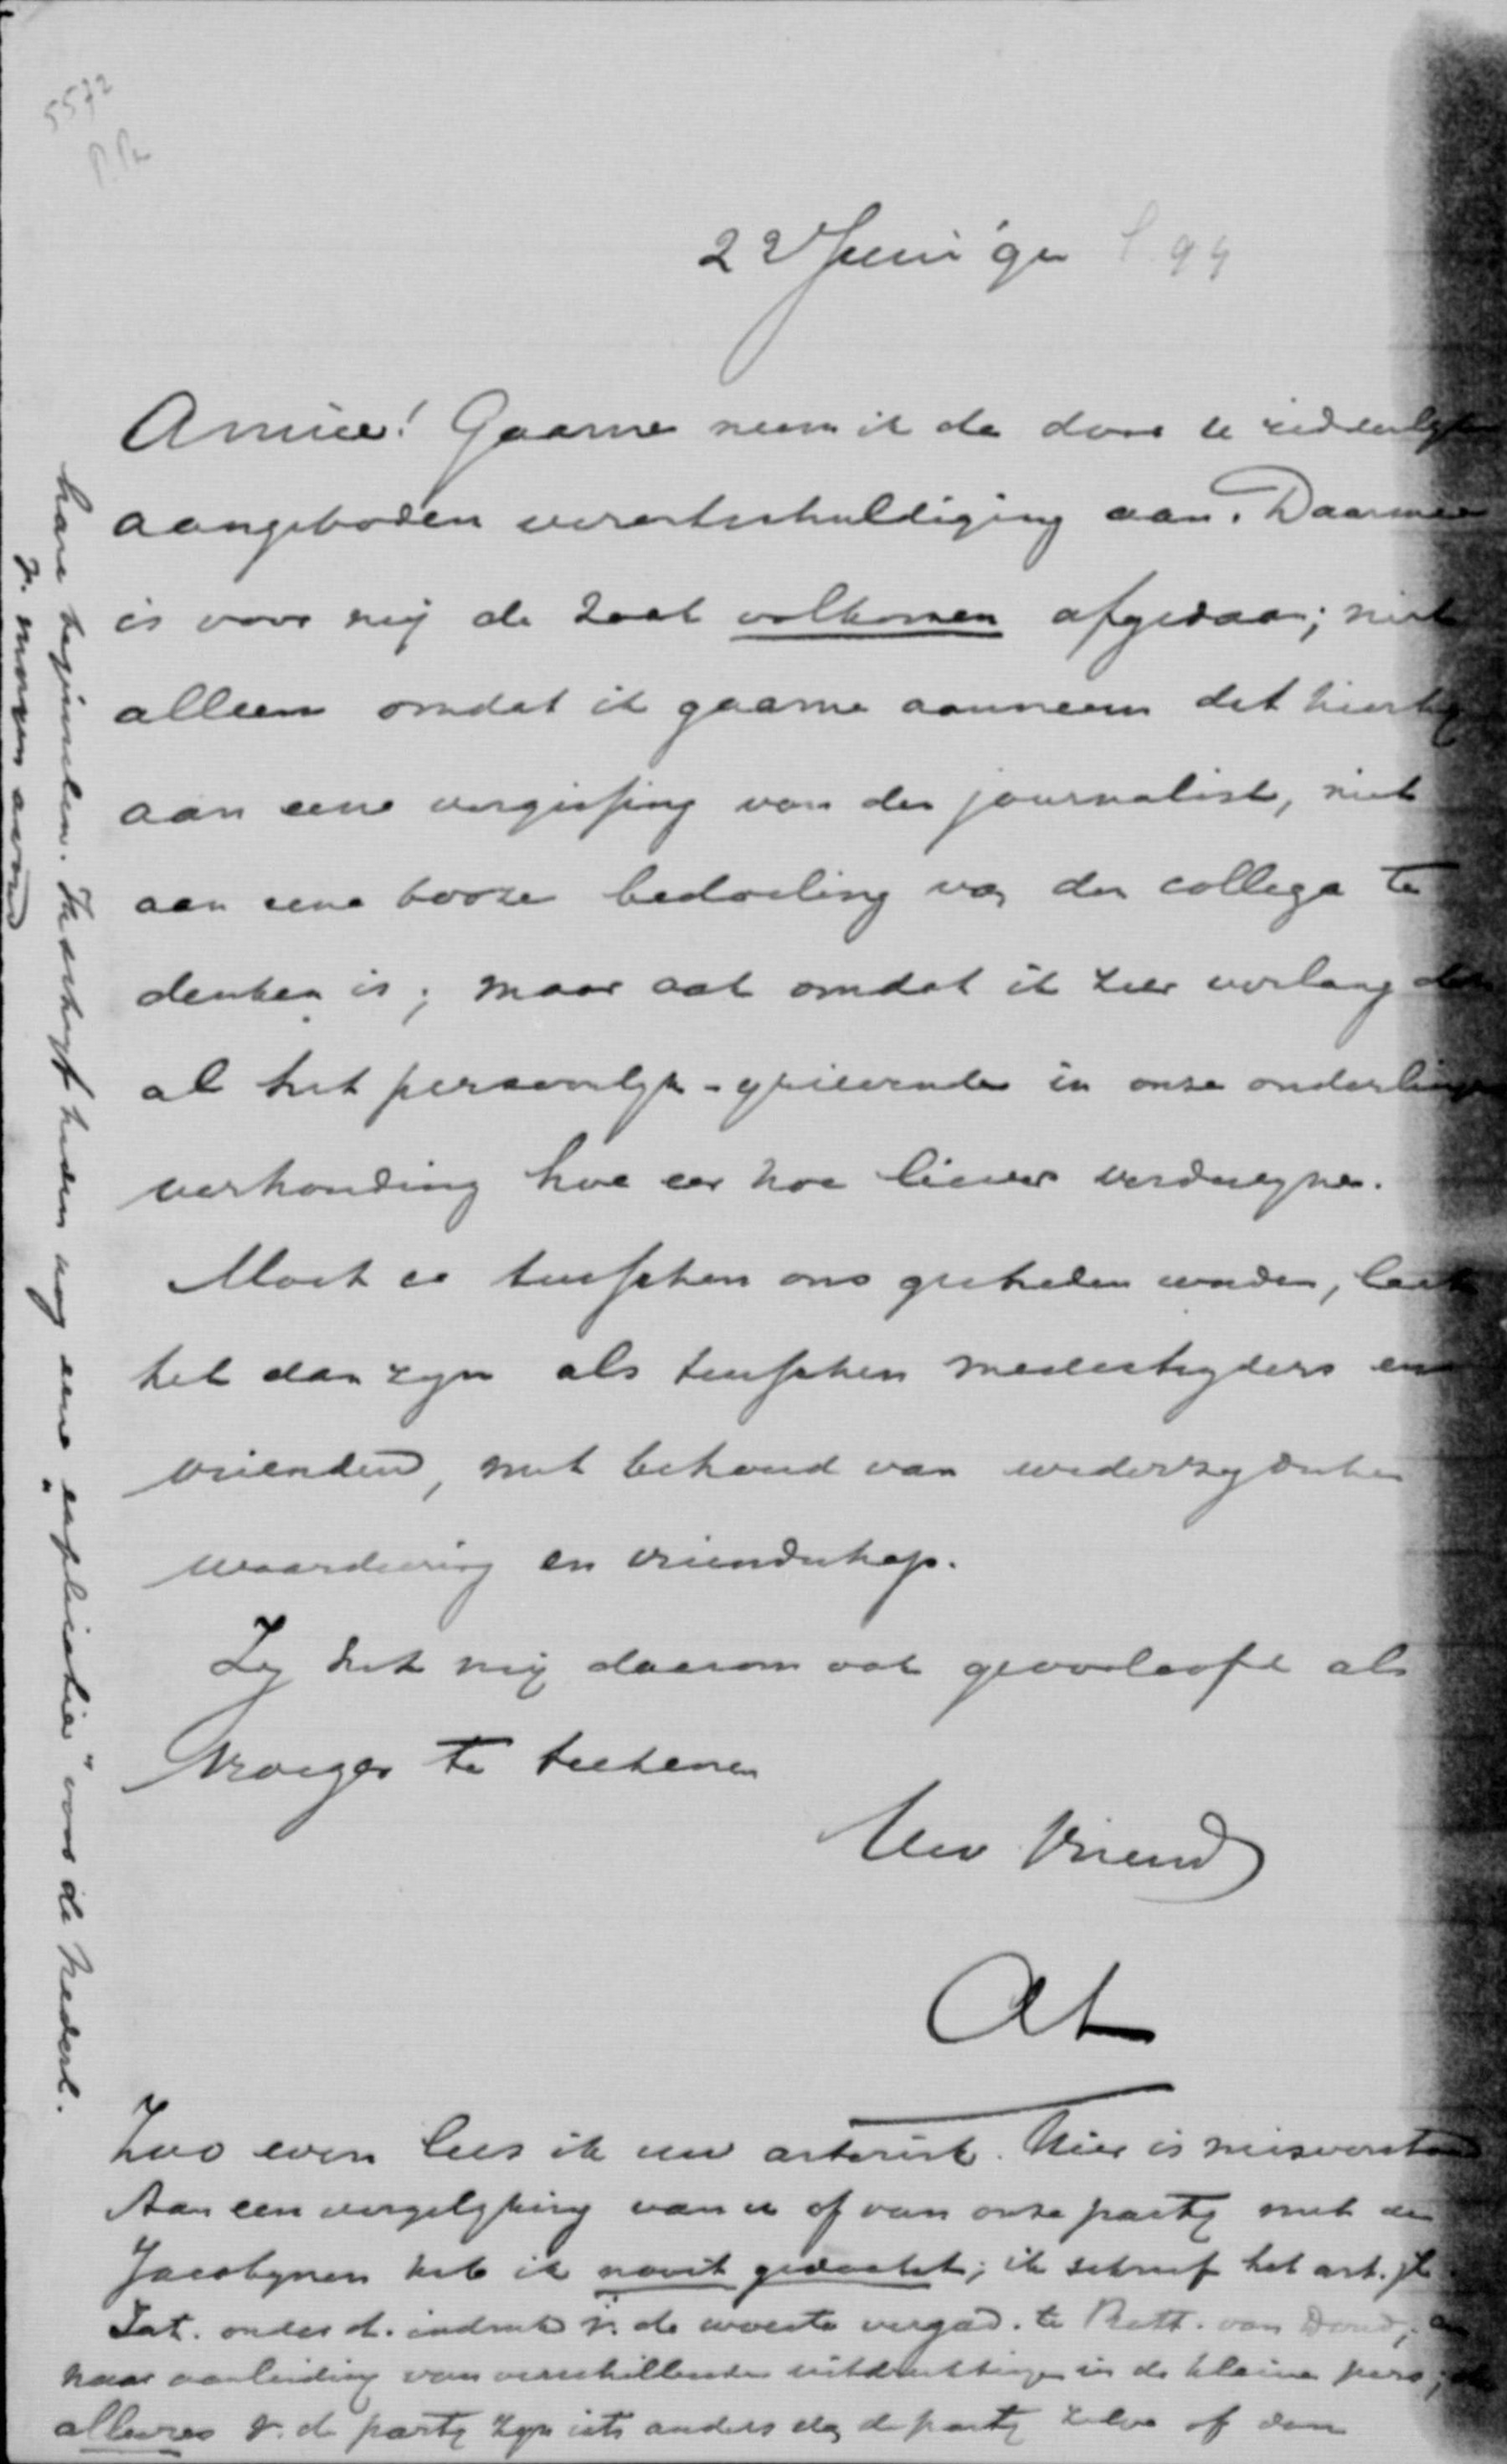 5572
22 Juni '94
Amice! Gaarne neem ik de door u ridderlijk
aangeboden verontschuldiging aan. Daarmee
is voor mij de zaak volkomen afgedaan; niet
alleen omdat ik gaarne aanneem dat hierbij
aan eene vergissing van den journalist, niet
aan eene booze bedoeling van den collega te
denken is; maar ook omdat ik zeer verlang dat
al het persoonlijk-grievende in onze onderlinge
verhouding hoe eer hoe liever verdwijne.
Moet er tusschen ons gestreden worden, laat
het dan zijn als tusschen medestrijders en
vrienden, met behoud van wederzijdsche
waardeering en vriendschap.
Zij het mij daarom ook geoorloofd als
vroeger te teekenen
Uw Vriend
AL
Zoo even lees ik uw asterisk. Hier is misverstand
Aan een vergelijking van u of van onze partij met de
Jacobijnen heb ik nooit gedacht; ik schreef het art. jl.
Zat. onder d. indruk v. de woeste vergad. te Rott. van Dond;
naar aanleiding van verschillende uitdrukkingen in de kleine pers; de
allures v. de partij zijn iets anders dan de partij zelve of dan
hare beginselen. Ik schrijf heden nog eene "explicatie" voor de Nederl.
v. morgen avond